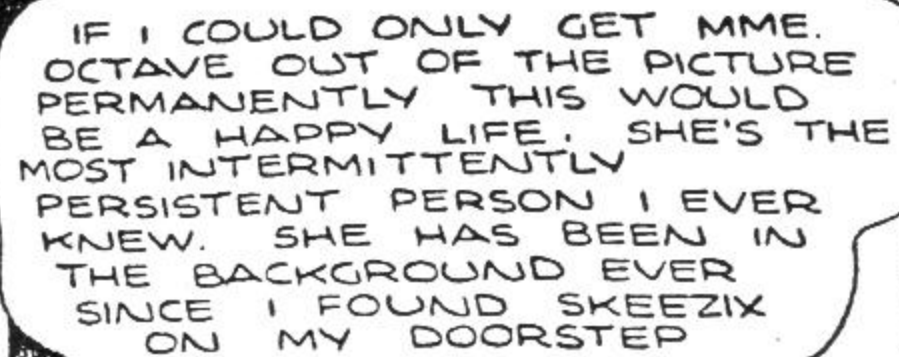 IF I COULD ONLY GET MME.
OCTAVE OUT OF THE PICTURE
PERMANENTLY THIS WOULD
BE A HAPPY LIFE. SHE'S THE
MOST INTERMITTENTLY
PERSISTENT PERSON I EVER
KNEW. SHE HAS BEEN IN
THE BACKGROUND EVER
SINCE I FOUND SKEEZIX
ON MY DOORSTEP